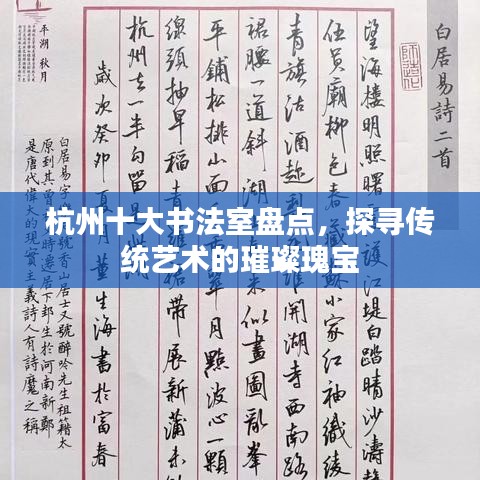 白居易詩二首
望海樓明照曙
江堤白踏晴沙濤
伍員廟柳色
蘇小家红袖織綾
青旗沽酒趁
開湖寺西南路
裙腰一道斜湖
來似畫圖亂峯
平鋪松排山面
月點波心一顆
線頭抽早稻
裙帶展新蒲未
杭州去一半勾留
歲次癸卯夏月董生海書於富春
白居易字
香山居士又號醉吟先生祖籍太
原到其曾
生於河南新鄭
是唐代偉大的現實主義詩人有詩魔之稱
平湖 秋月
杭州十大书法室盘点，探寻传
统艺术的璀璨瑰宝